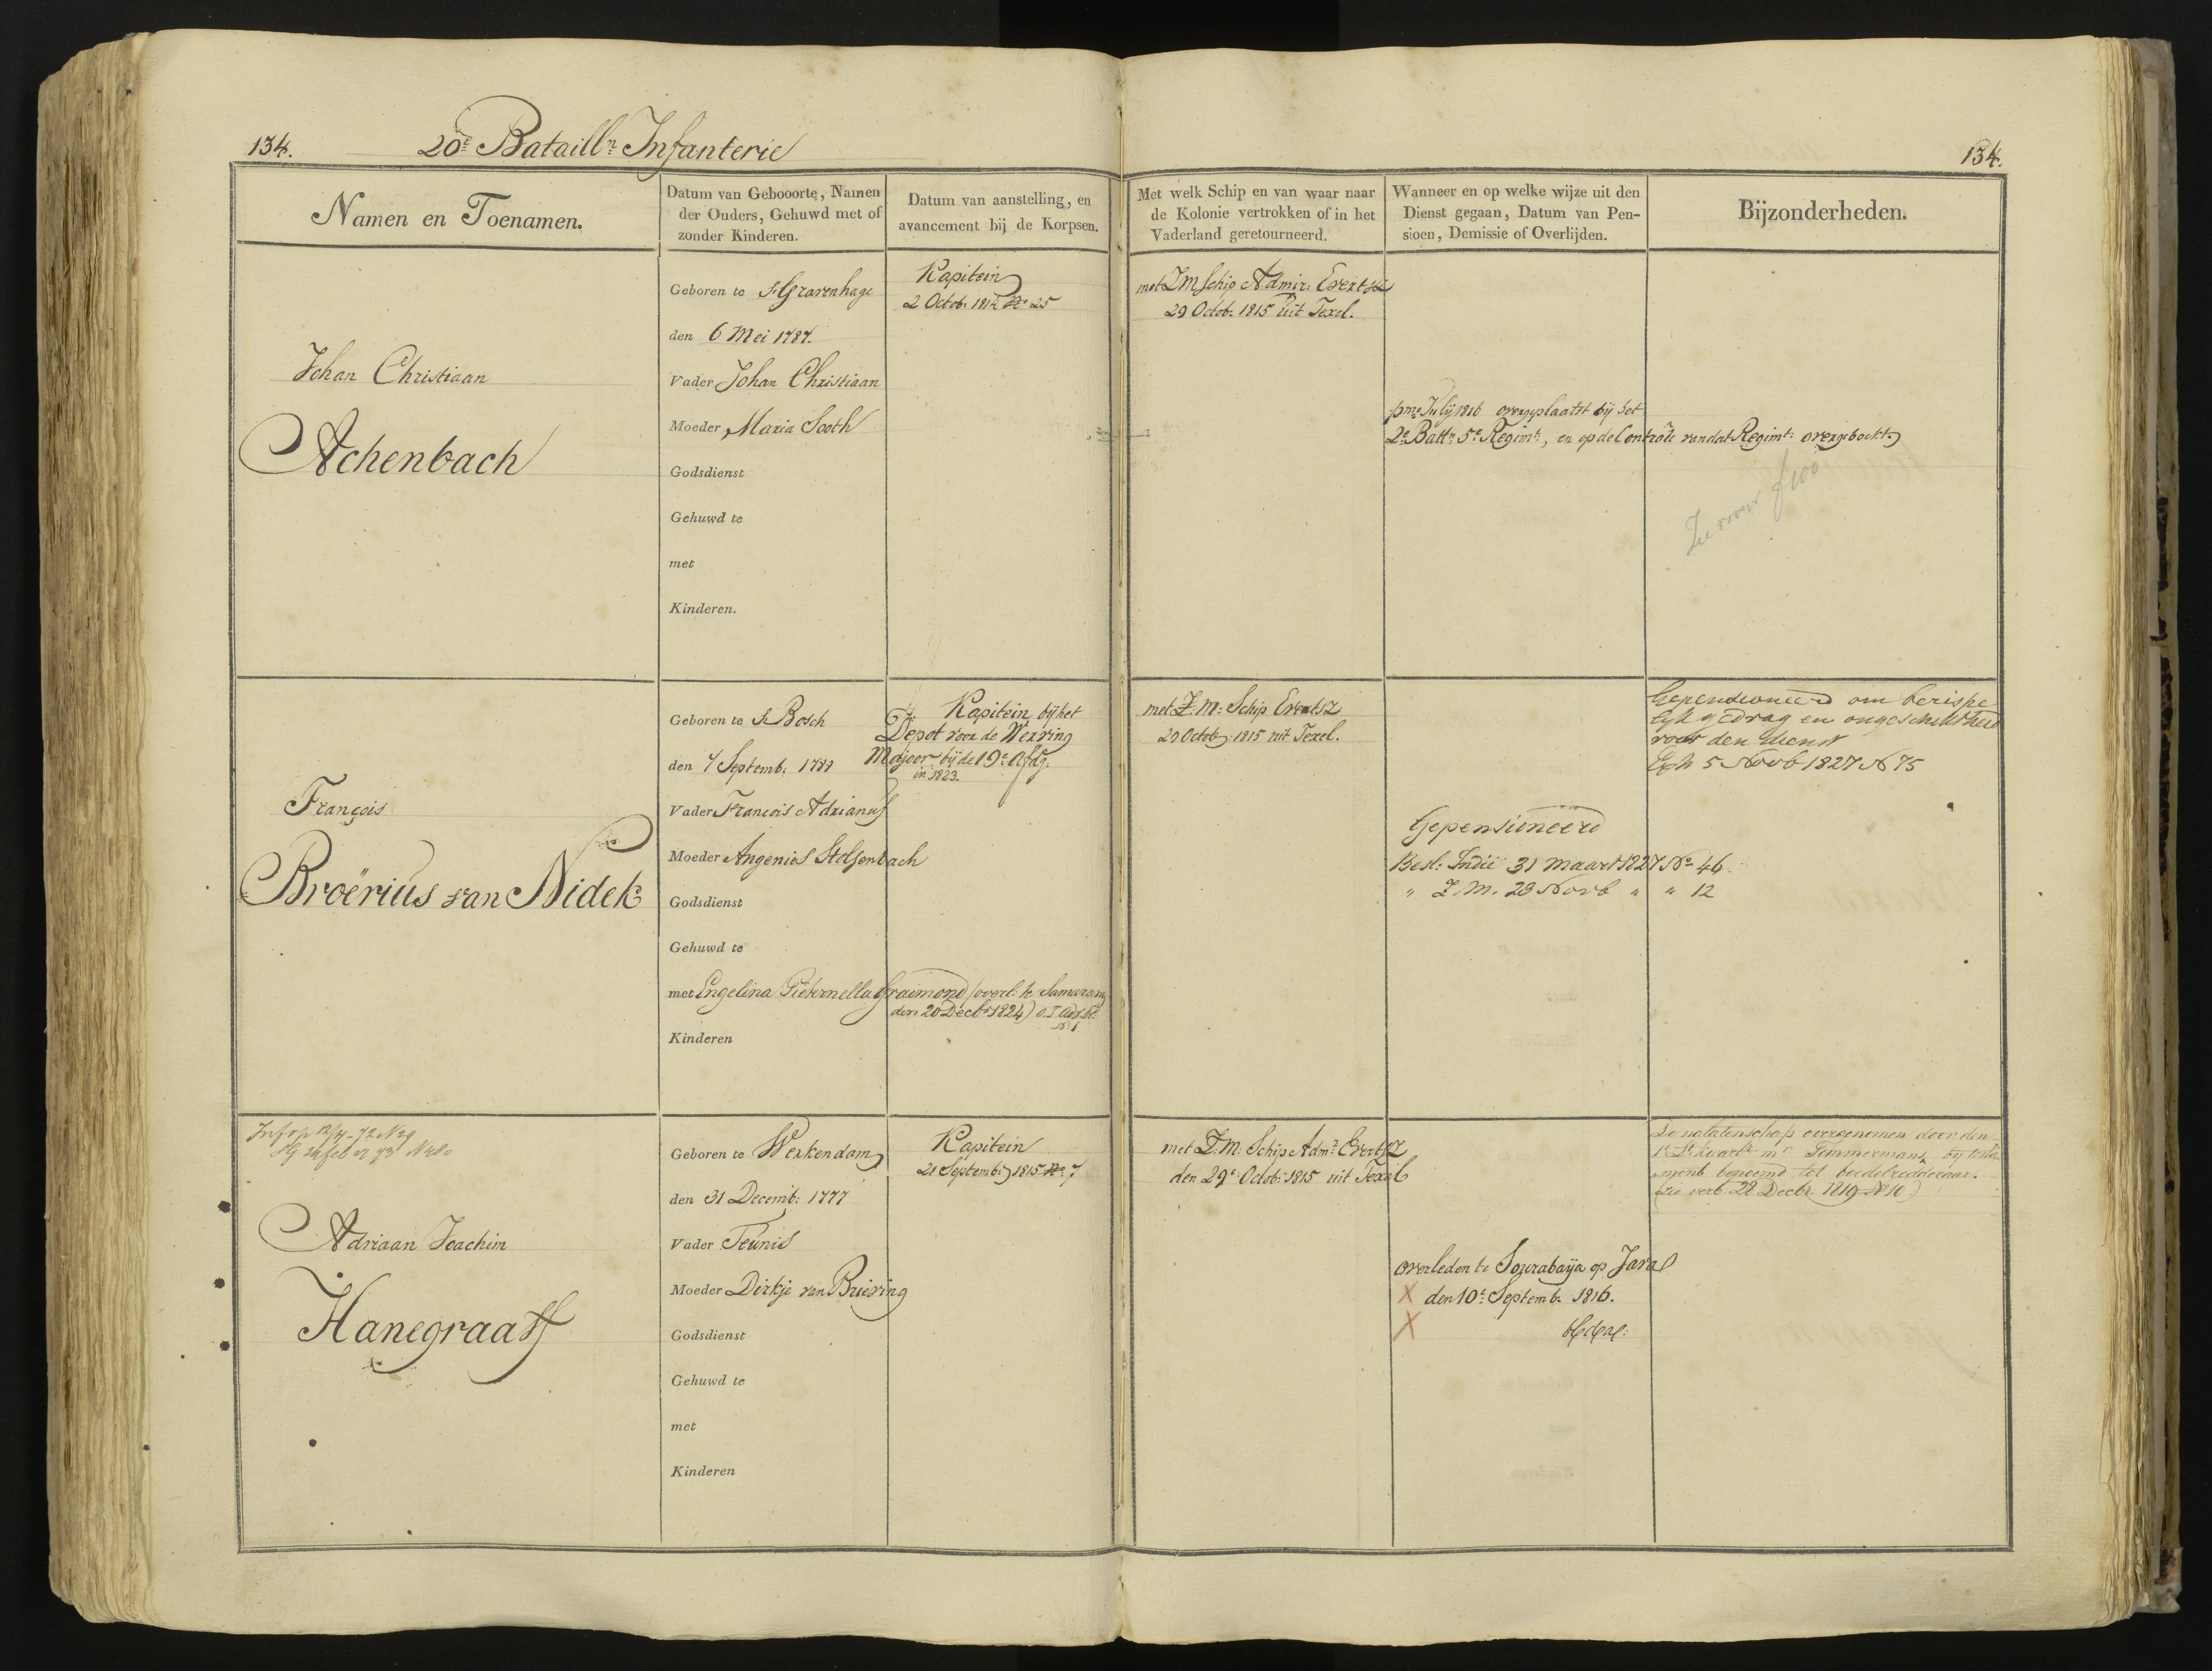 134.
20e Batailln Infanterie
134.
Namen en Toenamen.
Datum van Gebooorte, Namen
der Ouders, Gehuwd met of
zonder Kinderen.
Datum van aanstelling, en
avancement bij de Korpsen.
Met welk Schip en van waar naar
de Kolonie vertrokken of in het
Vaderland geretourneerd.
Wanneer en op welke wijze uit den
Dienst gegaan, Datum van Pen-
sioen, Demissie of Overlijden.
Bijzonderheden.
Johan Christiaan
Achenbach
Geboren te s'Gravenhage
den 6 Mei 1787.
Vader Johan Christiaan
Moeder Maria Sooth
Godsdienst
Gehuwd te
met
Kinderen.
Kapitein
2 Octob: 1814 No 25
met ZM Schip Admir: Evertsz
29 Octob: 1815 uit Texel.
pmo Julij 1816 overgeplaatst bij het
2e Battn 5e Regimt:, en op de Controle van dat Regimt: overgeboekt.
Zie voor f 100
François
Broërius van Nidek
Geboren te s Bosch
den 4 Septemb: 1788
Vader Francois Adrianus
Moeder Angenies Stolsenbach
Godsdienst
Gehuwd te
met Engelina Pieternella Graimond (overl: te Samarang
den 20 Decbr 1824)
No 1
Kinderen
Kapitein bij het
Depot voor de Werving
Majoor bij de 19e Afdg.
in 1823.
met Z: M: Schip Evertsz
29 Octob: 1815 uit Texel.
Gepensioneerd
Besl: Indië 31 Maart 1827 No 46
" Z M. 28 Novb " " 12
Gepensioneerd om berispe
lyk gedrag en ongeschiktheid
voor den dienst
Exh 5 Novb 1827 N 75
Adriaan Joachim
Hanegraaff
Geboren te Werkendam
den 31 Decemb: 1777
Vader Teunis
Moeder Dirkje van Briering
Godsdienst
Gehuwd te
met
Kinderen
Kapitein
21 Septemb: 1815 No 7
met Z: M: Schip Admr Evertsz
den 29e Octob: 1815 uit Texel
overleden te Sourabaija op Java
X den 10e Septemb: 1816.
X
De nalatenschap overgenomen door den
1e Lt Kwartr mr Timmermans by testa
ment benoemd tot boedelredderaar.
(zie verb. 28 Decbr 1819 N 10)